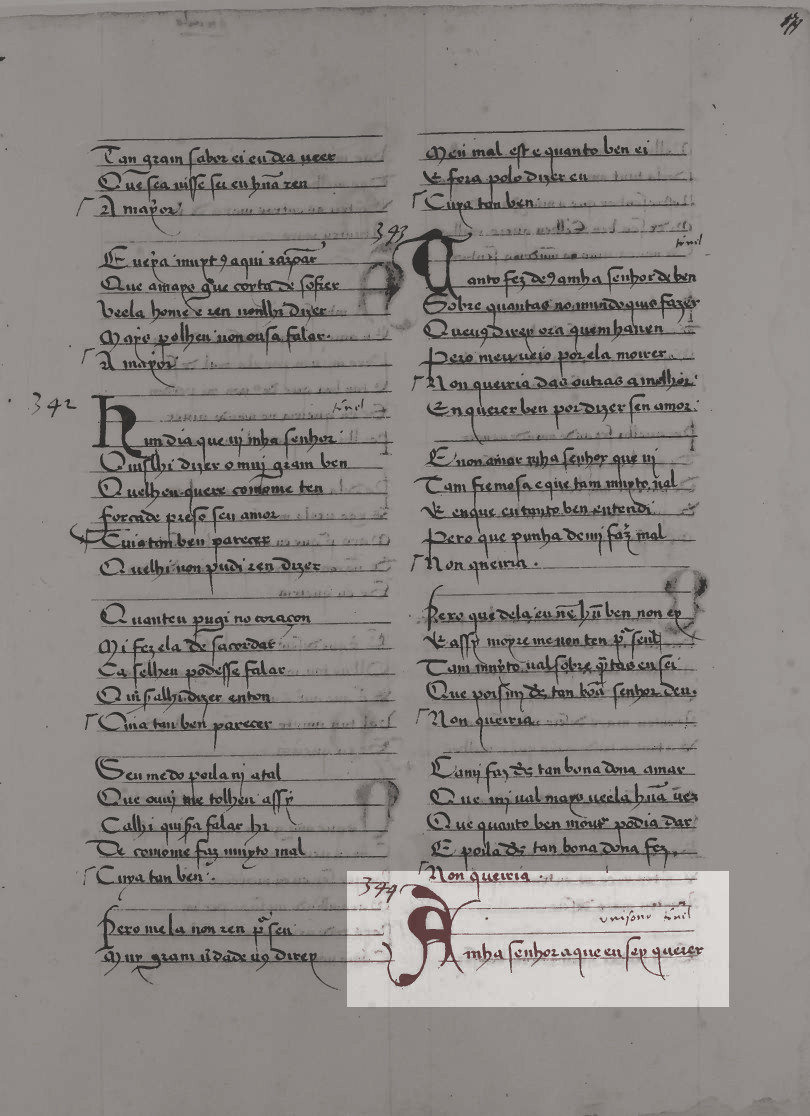 Tan gram sabor ei eu dea ueer
Que sea uisse sei eu hnã ren
A mayor
E ueera muyt 9 aqui razoar
Que amayo que corta de sofrer
Veela home e ren nonlhi dizer
Mays polhen non ousa falar.
A mayor
342
tornel
Hun dia que ui mha senhor
Quislhi dizer o mui gram ben
Quelheu quere comome ten
forçade preso seu amor
Cuia tan ben parecer
Quelhi non pudi ren dizer
Quanteu pugi no coraçon
Mi fez ela desacordar
Ca selheu podesse falar
Quisalhi dizer enton
Cuia tan ben parecer
Seu medo poila ui atal
Que ouuj me tolheu assy
Calhi quisera falar hi
De comome faz muyto mal
Cuya tan ben.
Pero mela non ren pª seu
Muy gram u'dade u9 direy
Meu mal est e quanto ben ei
E fora polo dizer eu
Cuya tan ben
343
tornel
Quanto fez de9 amha senhor de ben
Sobre quantas no mundo quis fazer
Queu9 direy ora quem han en
Pero meu ueio por ela morrer
Non queiria das outras a melhor
En querer ben por dizer sen amor.
E non amar mha senhor que ui
Tam fremosa e que tam muyto ual
E en que eu tanto ben entendi
Pero que punha de mj faz mal
Non queiria.
Pero que dela eu nẽ hũ ben non ey
E assy moyreme non ten pª seu
Tam muyto ual sobre qªtas en sei
Que poismj des tan boã senhor deu.
Non queiria.
Camj faz des tan bona dona amar
Que mj ual mays ueela hnã uez
Que quanto ben mour podia dar
E poila des tan bona dona fez
Non queiria.
344
unisono tornel
A mha senhor a que eu sey querer